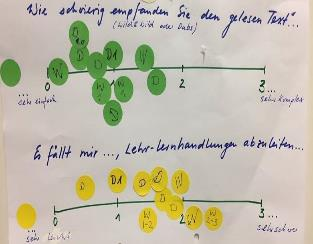 Wie schwierig empfanden Sie den gelesen Text"...
(Wild & Wild oder Dubs)
D
D
D
D1
W
W
D
W
W
D
0
2
3
...
sehr einfach
...
sehr komplex
Es fällt mir ..., Lehr-Lernhandlungen abzuleiten...
D
D1
D
D
W
D
D
W
1-2
W
W
2-3
0
1
2
3
...
sehr leicht
...
sehr schwer